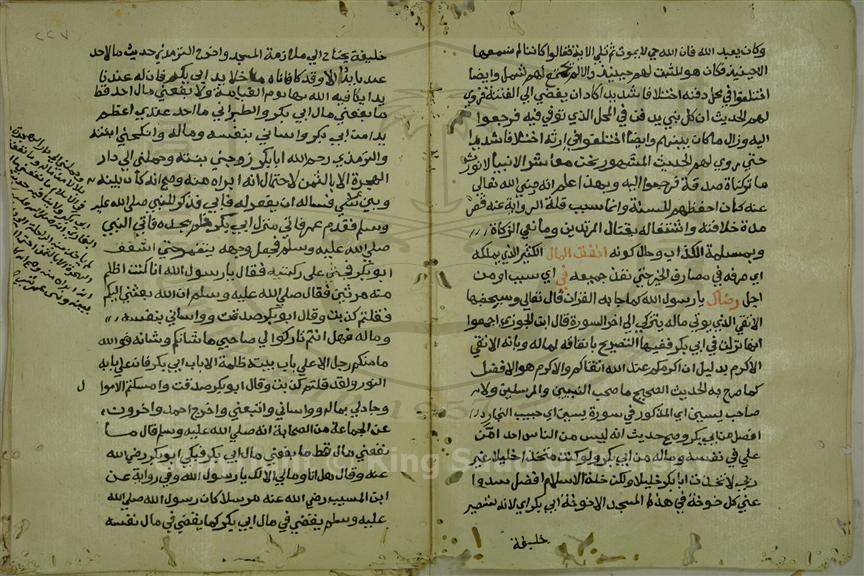 وكان يعبد الله فان الله حي لا يموت ثم تلي الاية فقالوا كاننا لم نسمعها
الا حينئذ فكان هو المثبت لهم حينئذ والا لم يجتمع لهم شمل وايضا
اختلفوا في محل دفنه اختلافا شديدا كاد ان يفضي الى الفتنة فروي
لهم الحديث ان كل نبي يدفن في المحل الذي توفي فيه فرجعوا
اليه وزال ما كان بينهم وايضا اختلفوا في ارثه اختلافا شديدا
حتى روي لهم الحديث المشهور نحن معاشر الانبيا لا نورث
ما تركناه صدقة فرجعوا اليه وبهذا علم انه رضي الله تعالى
عنه كان احفظهم للسنة وانما سبب قلة الرواية عنه قصر
مدة خلافته واشتغاله بقتال المرتدين ومانعي الزكاة
وبمسيلمة الكذاب وحال كونه انفق المال الكثير الذي يملكه
اي صرفه في مصارف الخير حتى نفذ جميعه في اي سبب او من
اجل رضاك يا رسول الله كما جا به القران قال تعالى وسيجنبها
الاتقى الذي يوتي ماله يتزكى الى اخر السورة قال ابن الجوزي اجمعوا
انها نزلت في ابي بكر ففيها التصريح بانفاقه لماله وبانه الاتقى
الاكرم بدليل ان اكرمكم عند الله اتقاكم والاكرم هو الافضل
كما صرح به الحديث الصحيح ما صحب النبيين والمرسلين ولا
صاحب يسين اي المذكور في سورة يسين اي حبيب النجار
افضل من ابي بكر وصح حديث انه ليس من الناس احد امن
علي في نفسه وماله من ابي بكر ولو كنت متخذا خليلا غير
ربي لاتخذت ابا بكر خليلا ولكن خلة الاسلام افضل سدوا
عني كل خوخة في هذا المسجد الا خوخة ابي بكر اي لانه ستصير
خليفة
٢٢٧
خليفة يحتاج الى ملازمة المسجد واخرج الترمذي حديث ما لاحد
عندنا يد الا وقد كافاناه ما خلا يد ابي بكر فان له عندنا
يدا يكافيه الله بها يوم القيامة ولا نفعني مال احد قط
ما نفعني مال ابي بكر والطبراني ما احد عندي اعظم
يدا من ابي بكر واساني بنفسه وماله وانكحني ابنته
والترمذي رحم الله ابا بكر زوجني بنته وحملني الى دار
الهجرة الا بالثمن لاحتمال انه ابراه منه وصح انه كان بينه
وبين شي فساله ان يغفر له فابى فذكر للنبي صلى الله عليه
وسلم فقدم عمر فاتى منزل ابي بكر فلم يجده فاتى النبي
صلى الله عليه وسلم فجعل وجهه يتمعر حتى اشفق
ابو بكر فجثى على ركبتيه فقال يا رسول الله انا كنت اظلم
منه مرتين فقال صلى الله عليه وسلم ان الله بعثني اليكم
فقلتم كذبت وقال ابو بكر صدقت وواساني بنفسه
وماله فهل انتم تاركوا لي صاحبي ما شانكم وشانه فوالله
ما منكم رجل الا على باب بيته ظلمة الا باب ابي بكر فان على بابه
النور ولقد قلتم كذبت وقال ابو بكر صدقت وامسكتم الاموا
ل
وجاد لي بماله وواساني واتبعني واخرج احمد واخرون
عن الجماعة من الصحابة انه صلى الله عليه وسلم قال ما
نفعني مال قط ما نفعني مال ابي بكر فبكى ابو بكر رضي الله
عنه وقال هل انا ومالي الا لك يا رسول الله وفي رواية عن
ابن المسيب رضي الله عنه مرسلا كان رسول الله صلى الله
عليه وسلم يقضي في مال ابي بكر كما يقضي في مال نفسه